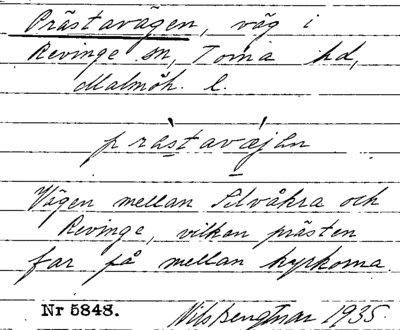 Prästavägen, väg i
Revinge sn, Torna hd,
Malmöh. l.
prästavæjən
Vägen mellan Silvåkra och
Revinge, vilken prästen
far på mellan kyrkorna.
Nr 5848. Nils Bengtsson 1935.